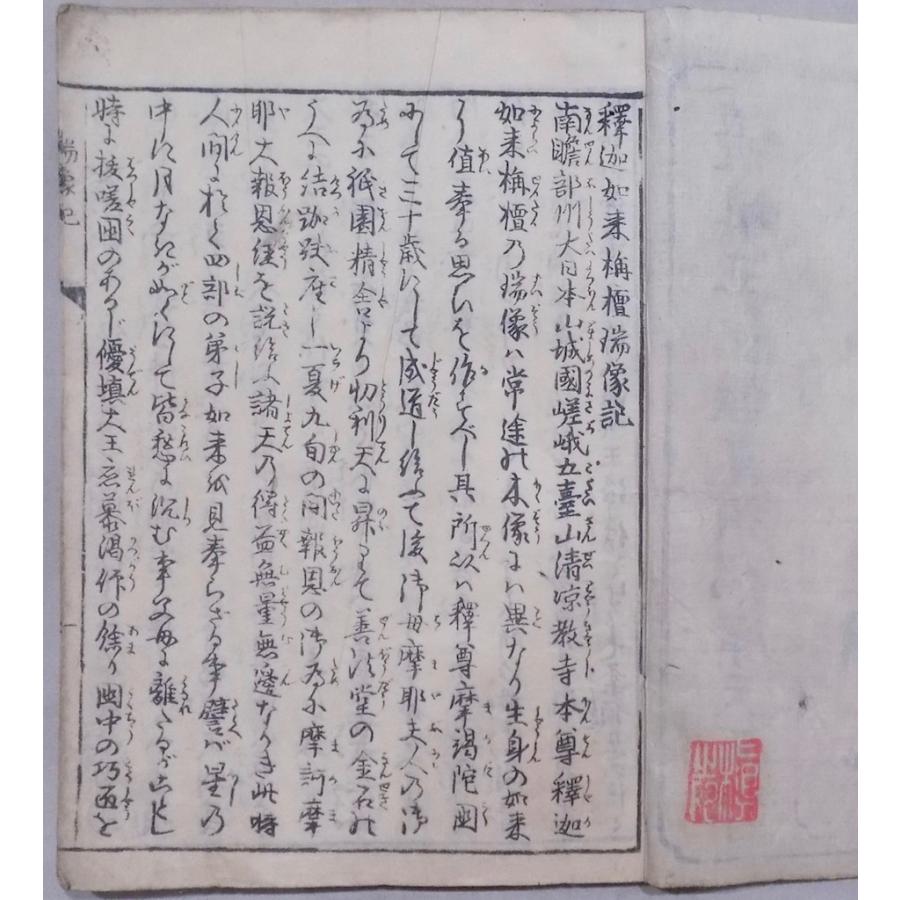 釋迦如来栴檀瑞像記
南瞻部州大日本山城國嵯峨五臺山清凉教寺本尊釋迦
如来栴檀乃瑞像ハ常途の木像にハ異なり生身の如来
に値奉る思ひを作すべし其所以ハ釋尊摩竭陀國
にして三十歳にして成道し給ひて後御母摩耶夫人乃御
為に祇園精舎より忉利天に昇りまして善法堂の金石の
うへに結跏趺座し一夏九旬の間報恩の御為に摩訶摩
耶大報恩経を説給ふ諸天乃得益無量無邊なりき此時
人間に於て四部の弟子如来を見奉らざる事譬バ星乃
中に月なきが如くにして皆愁に沈む事父母に離たるが如し
時に拔嗟国のあるじ優填大王恋慕渇仰の餘り国中の巧匠を
瑞像記
一